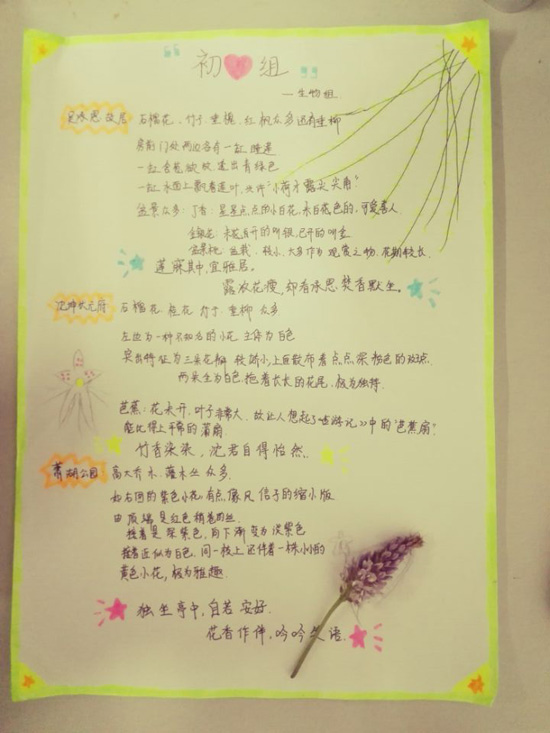 初 组
—生物组
吴承恩故居
石榴花、竹子、垂槐、红枫众多还有垂柳
房前门处两边各有一缸睡莲
一缸含苞欲放透出青绿色
一缸水面上飘着莲叶,只许"小荷才露尖尖角"
盆景众多:丁香:星星点点的小白花,米白藕色的,可爱喜人
金银花:未花
小,大多作为观赏之物,花期较长
莲寐其中,宜雅居。
露浓花瘦,却看承恩焚香默坐。
沈坤状元府
石榴花 桂花 竹子 垂柳 众多
左边为一种不知名的小花 主体为白色
突出特征为三朵花瓣 较娇小上面散布着点点深粉色的斑点
两朵全为白色,拖着长长的花尾,极为独特
芭蕉:花未开,叶子非常大,故让人想起了《西游记》中的"芭蕉扇"
能比得上平常的蒲扇
竹香染染,沈君自得怡然.
萧湖公园
高大乔木、灌木丛众多.
如右图的紫色小花,有点像风信子的缩小版
由顶端是红色稍卷的丝
接着是深紫色,向下渐变为淡紫色
接着近似为白色,同一枝上还伴着一株小小的
黄色小花,极为雅趣.
独坐亭中,自若安好.
花香作伴,吟吟笑语.